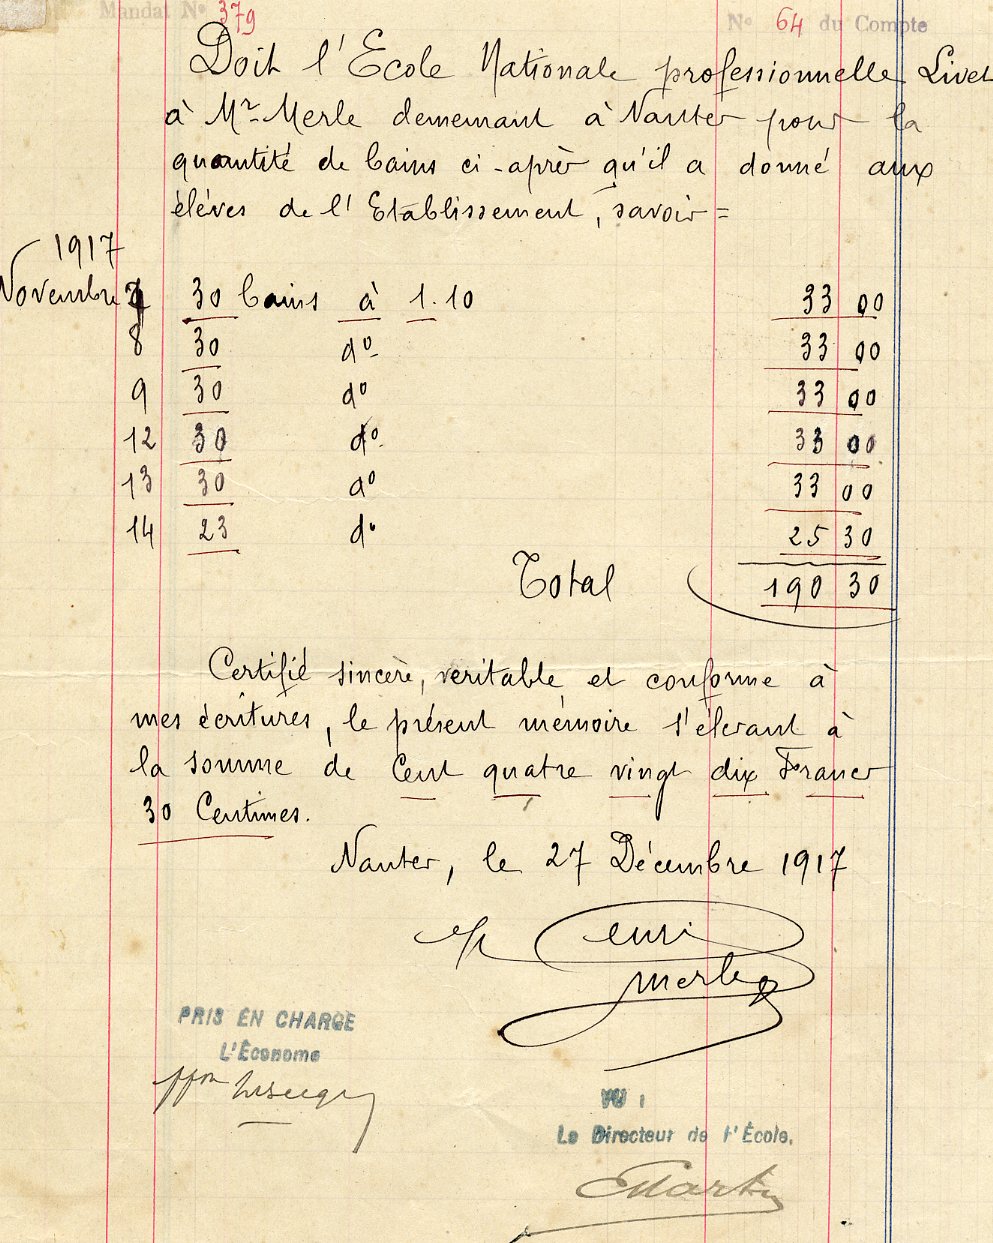 Mandat N° 379
N° 64 du Compte
Doit l'Ecole Nationale professionnelle Livet
à Mr. Merle demeurant à Nantes pour la
quantité de bains ci-après qu'il a donné aux
élèves de l'Etablissement, savoir =
1917
Novembre 7 30 bains à 1.10 33 00
8 30 do. 33 00
9 30 do 33 00
12 30 do. 33 00
13 30 do 33 00
14 23 do 25 30
Total 190 30
Certifié sincère, veritable et conforme à
mes écritures, le présent mémoire s'élevant à
la somme de Cent quatre vingt dix Francs
30 Centimes.
Nantes, le 27 Décembre 1917
Henri
Merle
PRIS EN CHARGE
L'Économe
VU :
Le Directeur de l'École.
EMartin